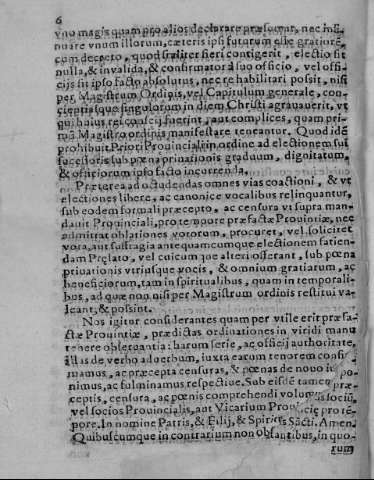 6
vno magis quam pro alios declarare præsumat, nec insi-
nuare vnum illorum, cæteris ipsi futurum esse gratiorē,
cum decreto, quod si aliter fieri contigerit, electio sit
nulla, & inualida, & confirmator à suo officio, vel offi-
cijs sit ipso facto absolutus, nec rehabilitari possit, nisi
per Magistrum Ordinis, vel Capitulum generale, con-
scientiasque singulorum in diem Christi agrauauerit, vt
qui huius rei conscij fuerint, aut complices, quam pri-
mũ Magistro ordinis manifestare teneantur. Quod idẽ
prohibuit Priori Prouinciali in ordine ad electionem sui
successoris sub pœna priuationis graduum, dignitatum,
& officiorum ipso facto incurrenda.
Præterea ad occludendas omnes vias coactioni, & vt
electiones libere, ac canonice vocalibus relinquantur,
sub eodem formali præcepto, ac censura vt supra man-
dauit Prouinciali, pro tempore præfactæ Prouintiæ, nec
admittat oblationes votorum, procuret, vel solicitet
vota, aut suffragia ante quamcumque electionem fatien-
dam Prelato, vel cuicum que alteri offerant, sub pœna
priuationis vtriusque vocis, & omnium gratiarum, ac
beneficiorum, tam in spiritualibus, quam in temporali-
bus, ad quæ non nisi per Magistrum ordinis restitui va-
leant, & possint.
Nos igitur considerantes quam per vtile erit præfa-
ctæ Prouintiæ, prædictas ordinationes in viridi manu
tenere obseruantia: harum serie, ac officij authoritate,
illas de verbo ad verbum, iuxta earum tenorem confir-
mamus, ac præcepta censuras, & pœnas de nouo im-
ponimus, ac fulminamus respectiue. Sub eisdẽ tamen præ-
ceptis, censura, ac pœnis comprehendi volumus socium,
vel socios Prouincialis, aut Vicarium Prouincię pro tẽ-
pore. In nomine Patris, & Filij, & Spiritus Sācti. Amen.
Quibuscumque in contrarium non obstantibus, in quo-
rum